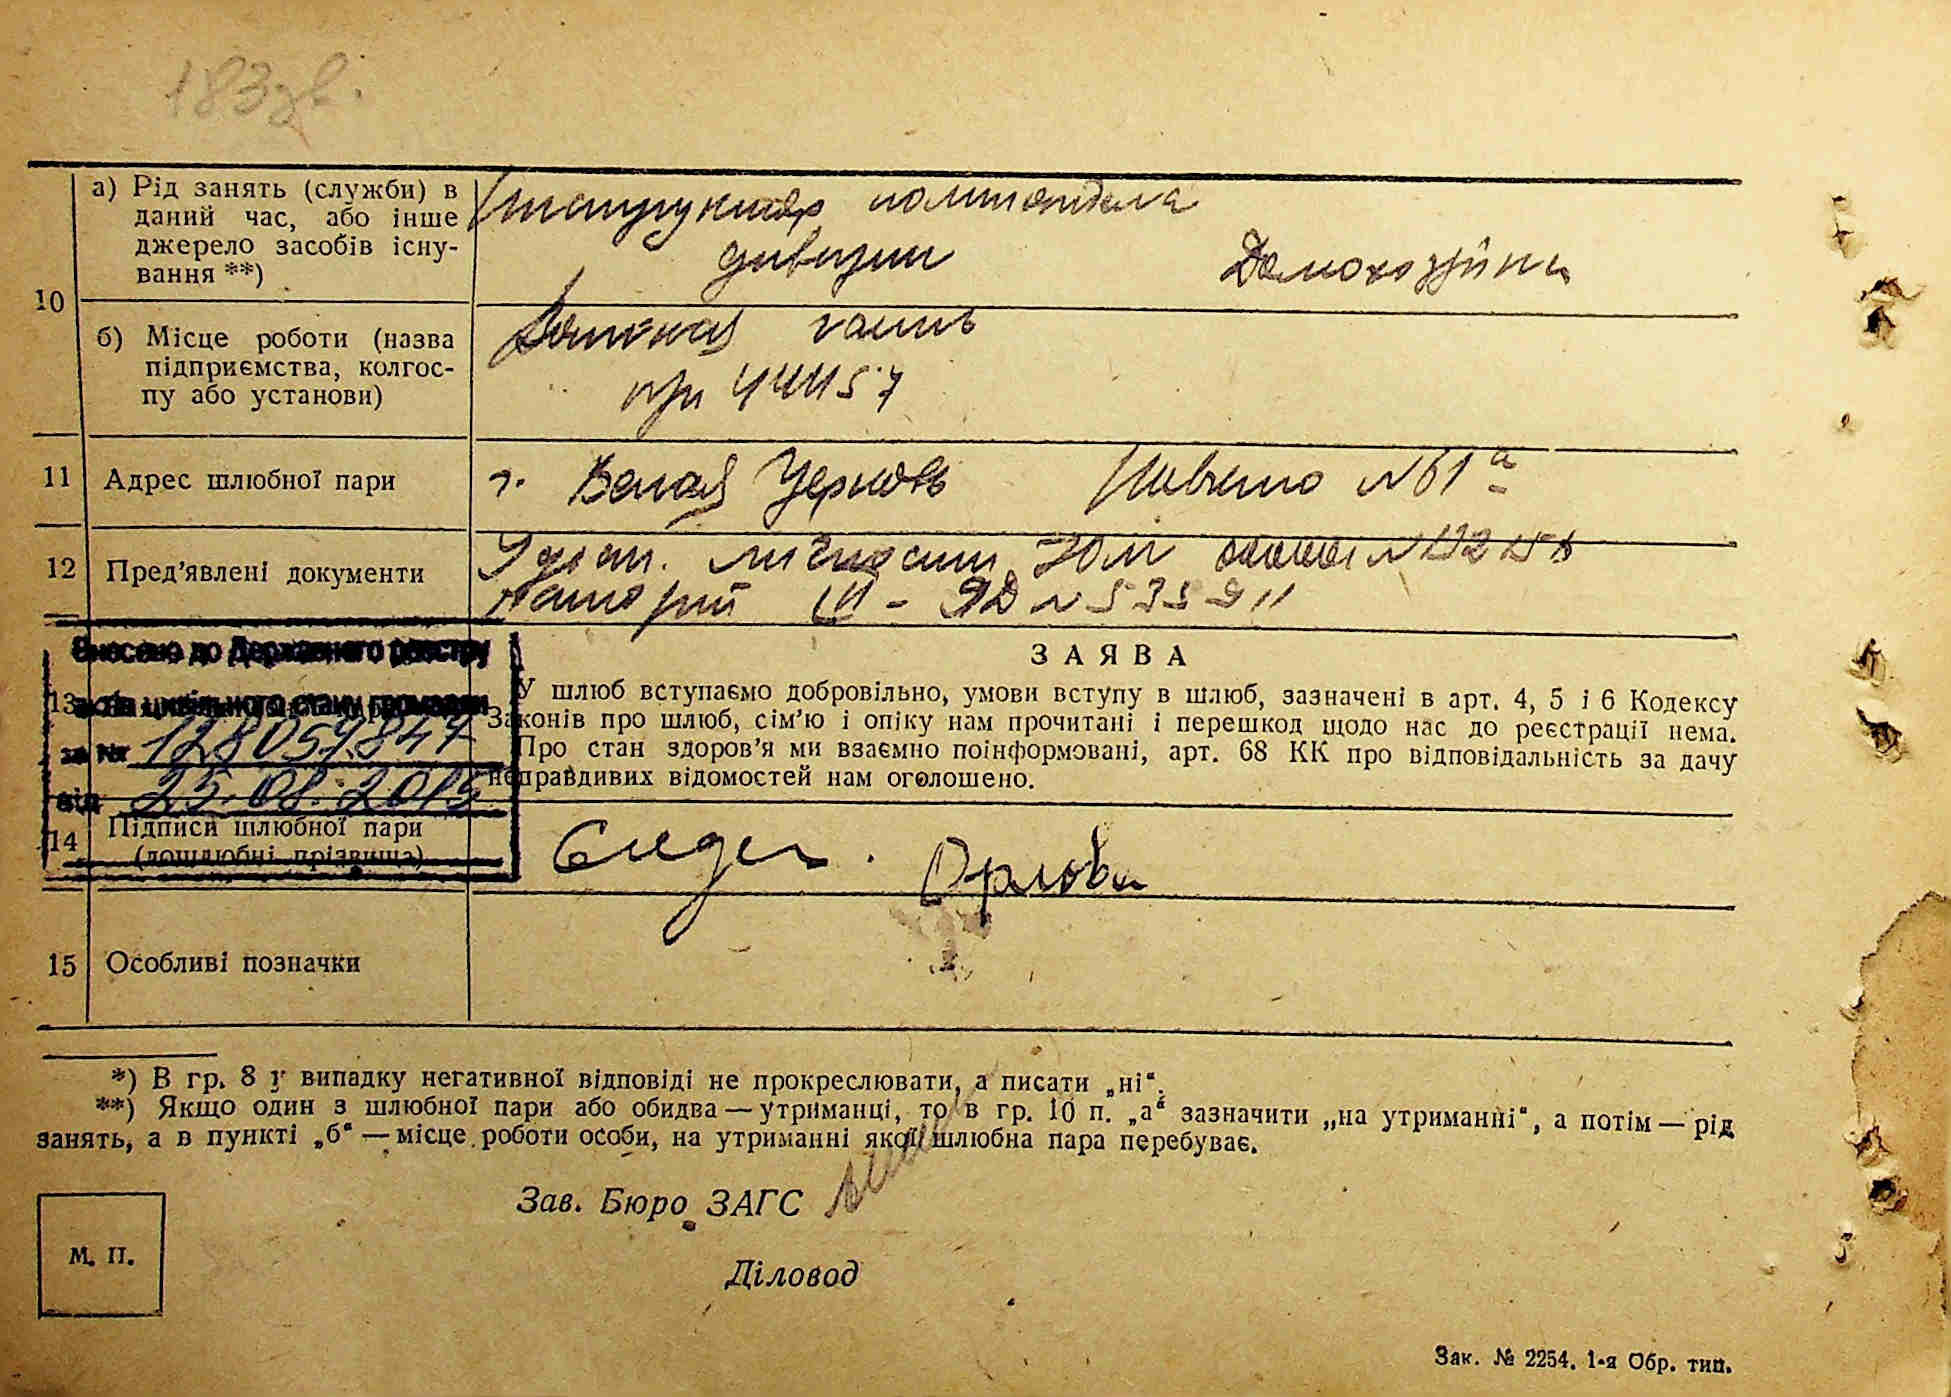 183зв.
10
а) Рід занять (служби) в
даний час, або інше
джерело засобів існу-
вання **)
Инструктор политотдела
дивизии
Домохозяйка
б) Місце роботи (назва
підприємства, колгос-
пу або установи)
часть
11
Адрес шлюбної пари
г. Белая Церковь Шевченко №61 а
12
Пред'явлені документи
Удост. личности
Паспорт
Внесено до Державного реєстру
актів цивільного стану громадян
за № 128059847
від 25.08.2015
13
ЗАЯВА
У шлюб вступаємо добровільно, умови вступу в шлюб, зазначені в арт. 4, 5 і 6 Кодексу
Законів про шлюб, сім'ю і опіку нам прочитані і перешкод щодо нас до реєстрації нема.
Про стан здоров'я ми взаємно поінформовані, арт. 68 КК про відповідальність за дачу
неправдивих відомостей нам оголошено.
14
Підписи шлюбної пари
(дошлюбні прізвища)
Орлова
15
Особливі позначки
*) В гр. 8 у випадку негативної відповіді не прокреслювати, а писати „ні“.
**) Якщо один з шлюбної пари або обидва — утриманці, то в гр. 10 п. „а“ зазначити „на утриманні“, а потім — рід
занять, а в пункті „б“ — місце роботи особи, на утриманні якої шлюбна пара перебуває.
Зав. Бюро ЗАГС
М. П.
Діловод
Зак. № 2254. 1-я Обр. тип.